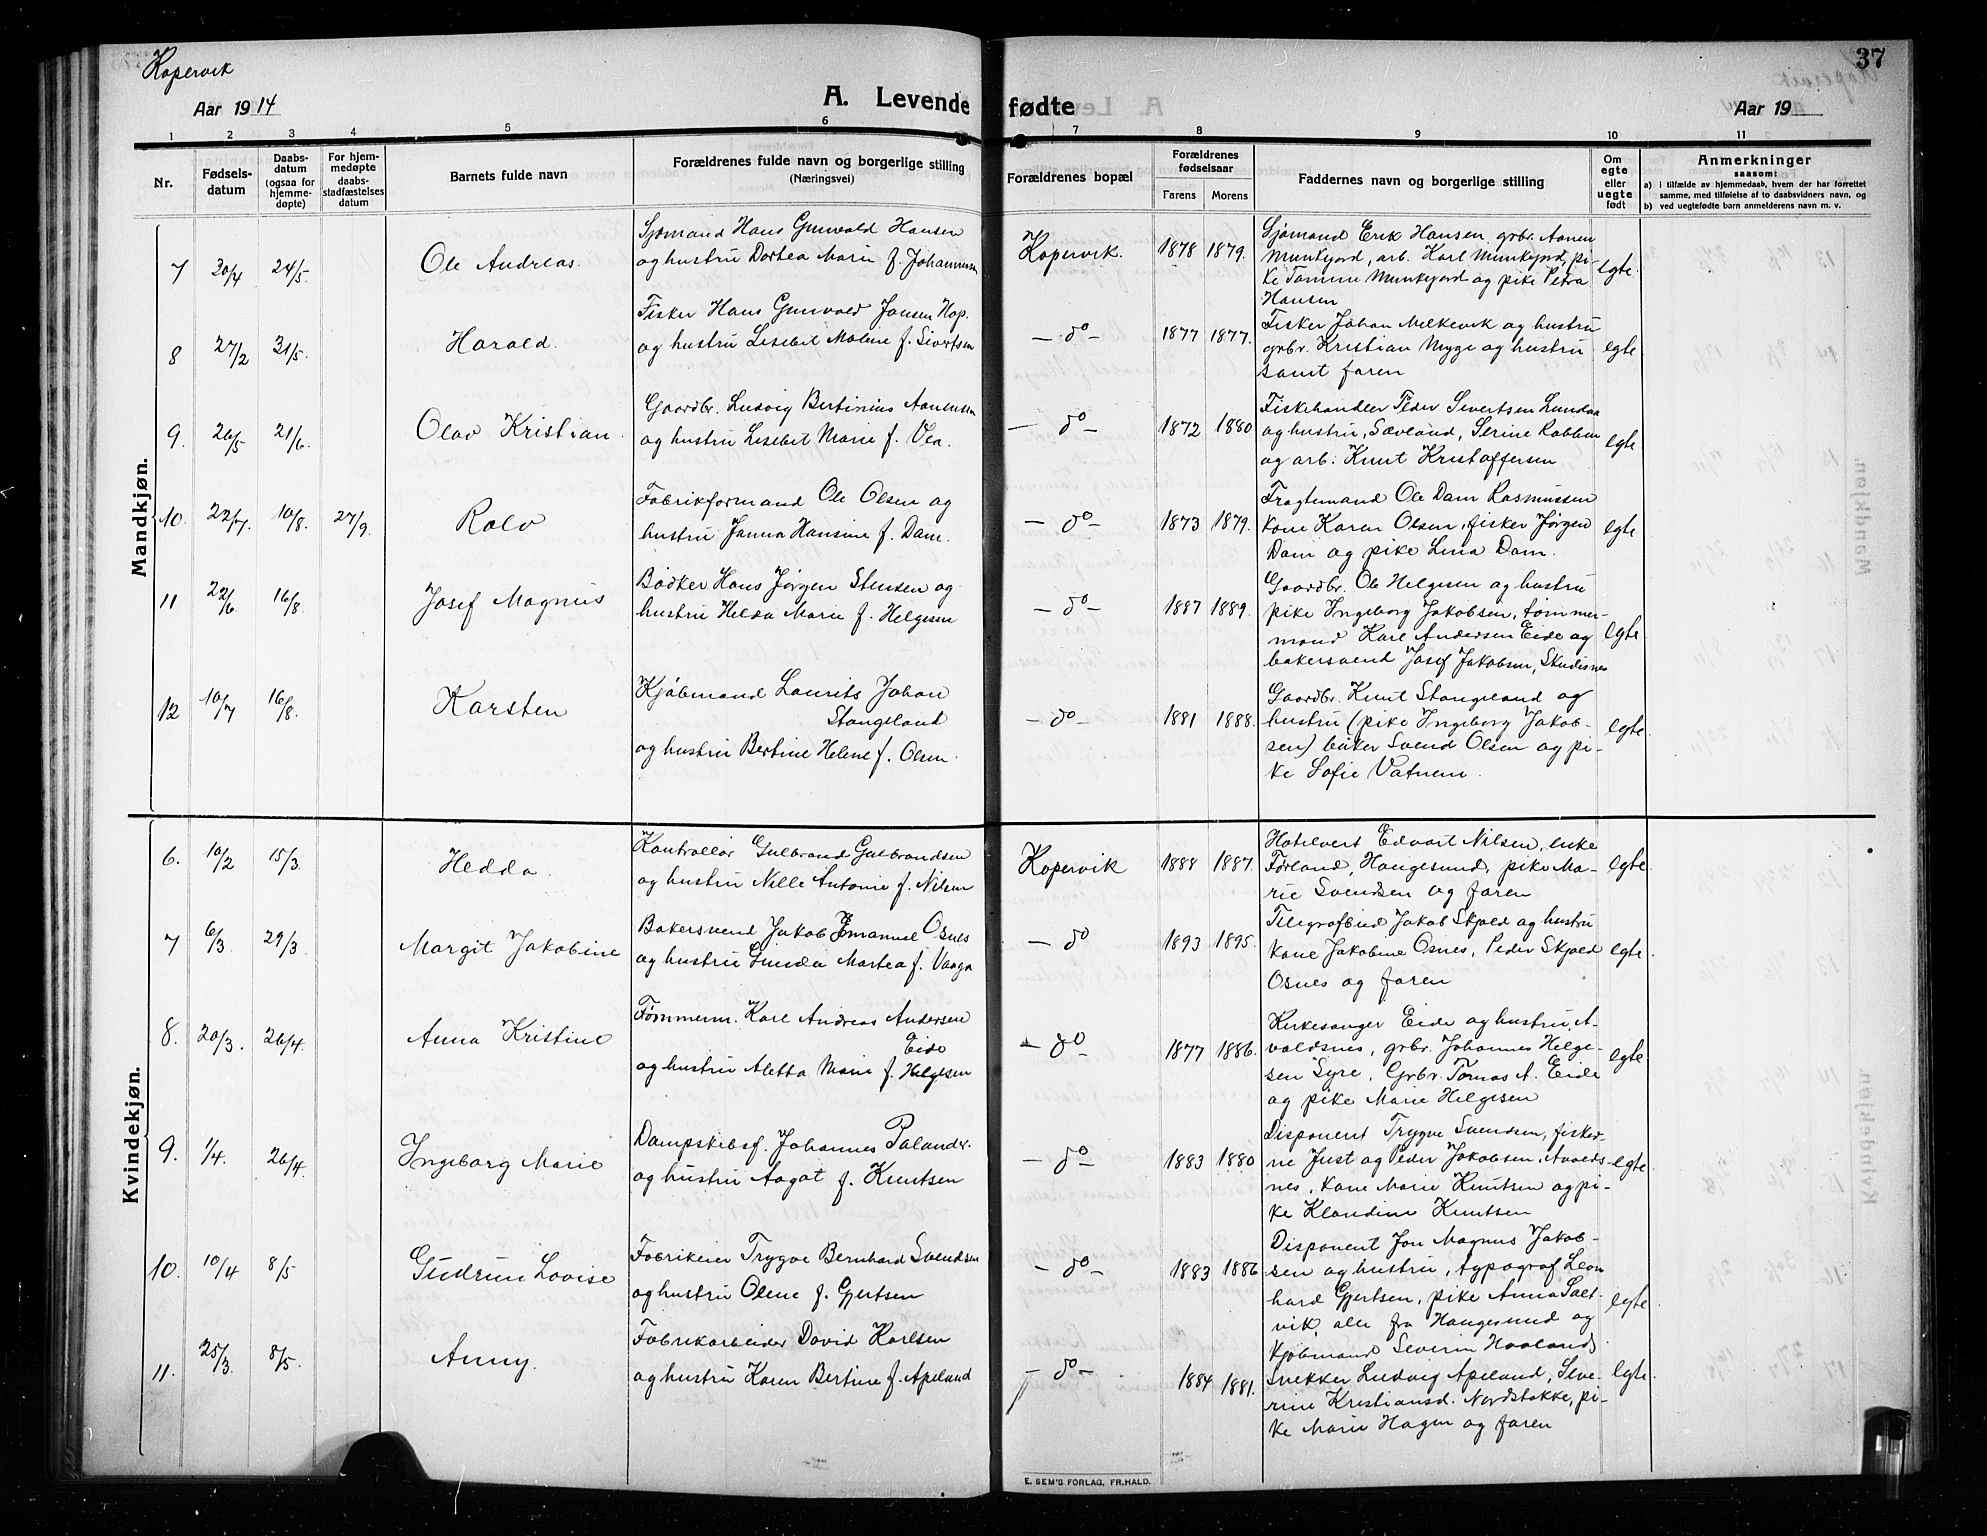 Kopervik
37
Aar 1914
A. Levende fødte
Aar 19
1 2 3 4 5 6 7 8 9 10 11
Nr.
Fødsels-
datum
Daabs-
datum
(ogsaa for
hjemme-
døpte)
For hjem-
medøpte
daabs-
stadfæstelses
datum
Barnets fulde navn
Forældrenes fulde navn og borgerlige stilling
(Næringsvei)
Forældrenes bopæl
Forældrenes
fødselsaar
Farens Morens
Faddernes navn og borgerlige stilling
Om
egte
eller
uegte
født
Anmerkninger
saasom:
a) i tilfælde av hjemmedaab, hvem der har forrettet
samme, med tilføielse af to daabsvidners navn, og
b) ved uegtefødte barn anmelderens navn m. v.
Mandkjøn.
7 20/4 24/5. Ole Andreas.
Sjømand Hans Gunvald Hansen
og hustru Dortea Marie f. Johannesen
Kopervik. 1878 1879.
Sjømand Erik Hansen, grbr. Aanen
Munkejord, arb. Karl Munkejord, pi-
ke Tomine Munkejord og pike Petra
Hansen
egte.
8 27/2 31/5. Harald.
Fisker Hans Gunvald Jansen Hop.
og hustru Lisebet Malene f. Sivertsen
— do — 1877 1877.
Fisker Johan Melkevik og hustru
grbr. Kristian Myge og hustru
samt faren
egte
9. 26/5 21/6. Olav Kristian.
Gaardbr. Ludvig Bertinius Aanensen
og hustru Lisebet Marie f. Vea.
— do — 1872 1880
Fiskehandler Peder Sivertsen Lundaa
og hustru, Sævland, Serine Robben
og arb. Knut Kristoffersen
egte
10. 22/7. 10/8. 27/9. Rolv
Fabrikformand Ole Olsen og
hustru Janna Hansine f. Dam.
— do — 1873 1879.
Fragtemand Ole Dam Rasmussen
kone Karen Olsen, fisker Jørgen
Dam og pike Lina Dam.
egte
11 22/6 16/8. Josef Magnus
Bødker Hans Jørgen Stensen og
hustru Helda Marie f. Helgesen
— do — 1887 1889.
Gaardbr. Ole Helgesen og hustru
pike Ingeborg Jakobsen, tømmer-
mand Karl Andersen Eide og
bakersvend Josef Jakobsen, Skudesnes
egte
12 10/7 16/8. Karsten
Kjøbmand Laurits Johan
Stangeland
og hustru Bertine Helene f. Olsen.
— do — 1881 1888.
Gaardbr. Knut Stangeland og
hustru (pike Ingeborg Jakob-
sen) baker Svend Olsen og pi-
ke Sofie Vatnem.
egte
Kvindekjøn.
6. 10/2 15/3. Hedda.
Kontrollør Gulbrand Gulbrandsen
og hustru Nille Antonie f. Nilsen
Kopervik 1888 1887.
Hotelvert Edvart Nilsen, enke
Førland, Haugesund, pike Ma-
rie Svendsen og faren
egte
7 6/3 29/3. Margit Jakobine
Bakersvend Jakob Emanuel Osnes
og hustru Linda Martea f. Vaage
— do 1893 1895.
Telegrafbud Jakob Skjold og hustru
kone Jakobine Osnes, Peder Skjold
Osnes og faren
egte
8. 20/3. 26/4. Anna Kristine
Tømmerm. Karl Andreas Andersen
Eide
og hustru Aletta Marie f. Helgesen
— do 1877 1886.
Kirkesanger Eide og hustru, A-
valdsnes, grbr. Johannes Helge-
sen Syre, Grbr. Tomas A. Eide
og pike Marie Helgesen
egte
9. 1/4. 26/4. Ingeborg Marie
Dampskibsf. Johannes Palander.
og hustru Aagot f. Knutsen
— do — 1883 1880
Disponent Trygve Svendsen, fisker-
ne Just og Peder Jakobsen, Avalds-
nes, kone Marie Knutsen og pi-
ke Klaudine Knutsen
egte
10. 10/4 8/5 Gudrun Lovise
Fabrikeier Trygve Bernhard Svendsen
og hustru Olene f. Gjertsen
— do — 1883 1886
Disponent Jon Magnus Jakob-
sen og hustru, typograf Leon
hard Gjertsen, pike Anna Salt-
vik, alle fra Haugesund og
Kjøbmand Severin Haaland,
egte
11. 25/3. 8/5. Anny.
Fabrikarbeider David Karlsen
og hustru Karen Bertine f. Apeland
— do — 1884 1881.
Snekker Ludvig Apeland, Seve-
rine Kristiansd. Nordstokke, pi-
ke Marie Hagen og faren
egte
E. SEM'S FORLAG, FR.HALD.